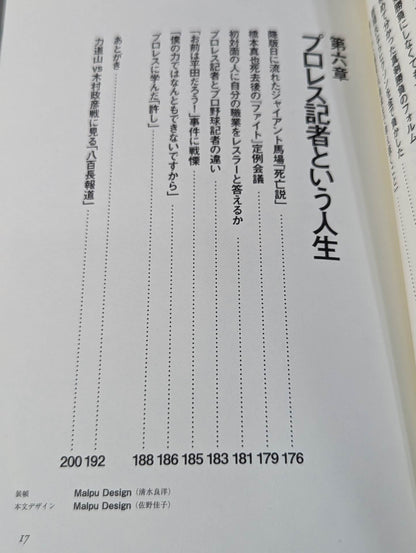 第六章
プロレス記者という人生
降版日に流れたジャイアント馬場「死亡説」 176
橋本真也死去後の「ファイト」定例会議 179
初対面の人に自分の職業をレスラーと答えるか 181
プロレス記者とプロ野球記者の違い 183
「お前は平田だろう!」事件に戦慄 185
「僕の力ではなんともできないですから」 186
プロレスに学んだ「許し」 188
あとがき 192
力道山vs木村政彦戦に見る「八百長報道」 200
装幀 Malpu Design(清水良洋)
本文デザイン Malpu Design(佐野佳子)
17